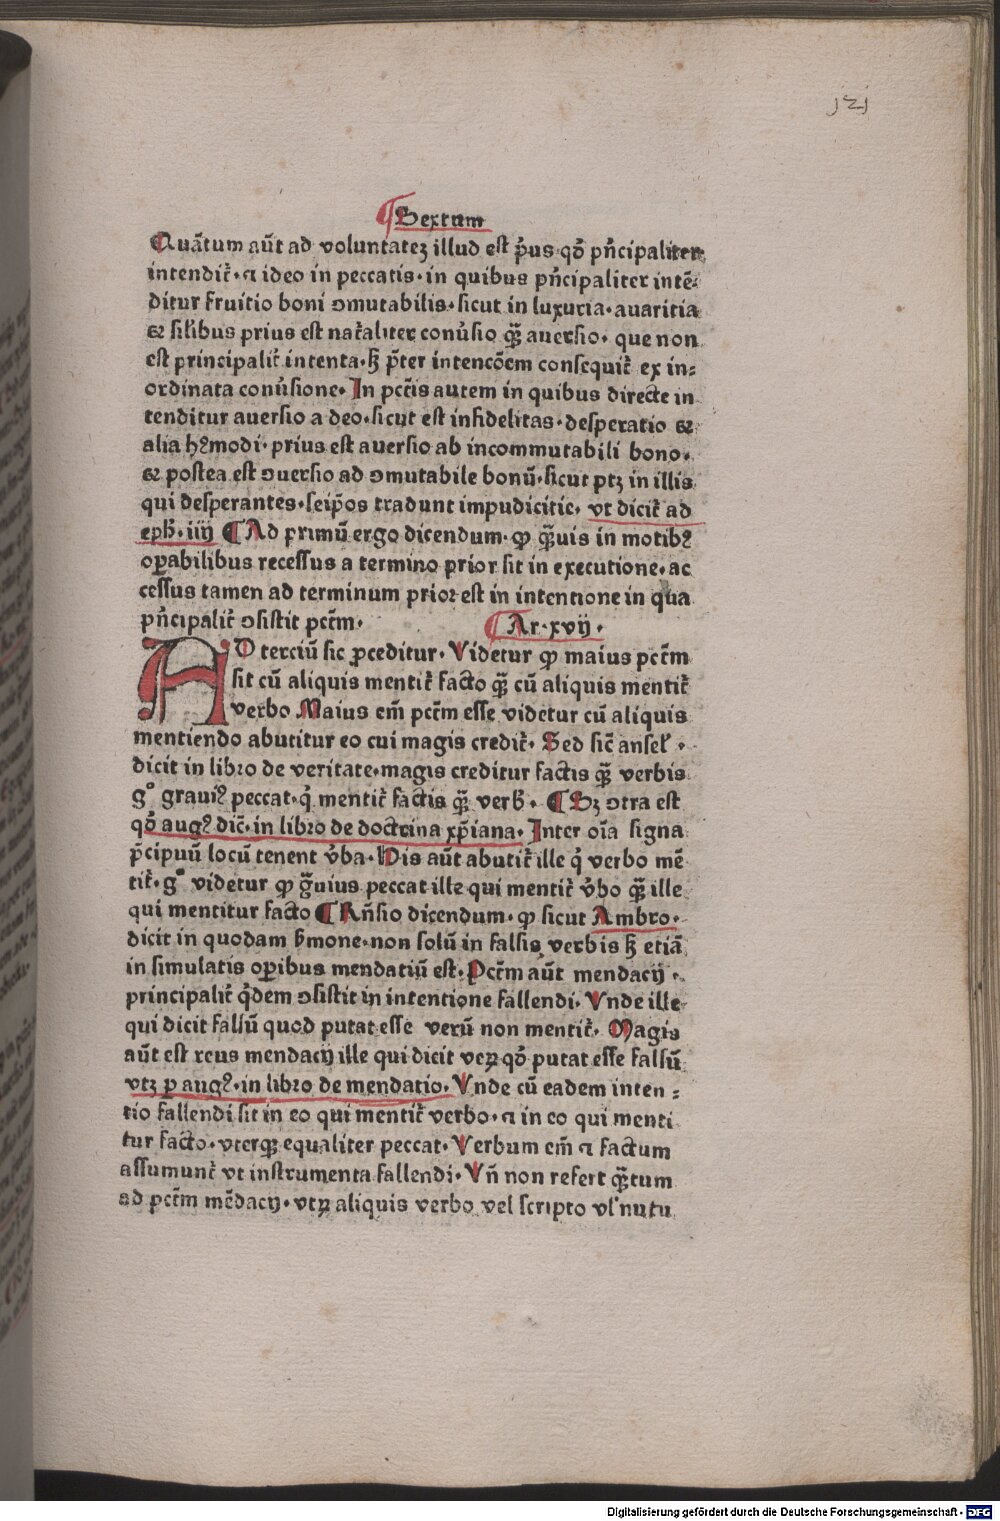 121
¶ Sextum
Quãtum aũt ad voluntatez illud est p̃us qõ pñcipaliter
intendit᷑· ⁊ ideo in peccatis· in quibus pñcipaliter intẽ⸗
ditur fruitio boni ↄmutabilis· sicut in luxuria· auaritia
⁊ silibus prius est nat᷑aliter conũsio q̃ꝫ auersio· que non
est principalit᷑ intenta· hꝫ p̃ter intencõem consequit᷑ ex in⸗
ordinata conũsione· In pctĩs autem in quibus directe in
tenditur auersio a deo· sicut est infidelitas· desperatio ⁊
alia hꝰmodi· prius est auersio ab incommutabili bono·
⁊ postea est ↄuersio ad ↄmutabile bonũ· sicut ptꝫ in illis
qui desperantes· seip̃os tradunt impudicitie· vt dicit᷑ ad
eph̃· iiij ¶ Ad primũ ergo dicendum· ꝙ q̃ꝫuis in motibꝰ
oꝑabilibus recessus a termino prior sit in executione· ac
cessus tamen ad terminum prior est in intentione in qua
pñcipalit᷑ ↄsistit pctm̃·
¶ Ar· xvij·
AD terciũ sic ꝓceditur· Videtur ꝙ maius pctm̃
sit cũ aliquis mentit᷑ facto q̃ꝫ cũ aliquis mentit᷑
verbo Maius em̃ pctm̃ esse videtur cũ aliquis
mentiendo abutitur eo cui magis credit᷑· Sed sic̃ ansel̃·
dicit in libro de veritate· magis creditur factis q̃ꝫ verbis
gº grauiꝰ peccat· q̇ mentit᷑ factis q̃ꝫ verb̃· ¶ Sꝫ ↄtra est
qõ augꝰ dic̃· in libro de doctrina xp̃iana· Inter oĩa signa
p̃cipuũ locũ tenent ṽba· His aũt abutit᷑ ille q̇ verbo mẽ
tit᷑· gº videtur ꝙ g̃uius peccat ille qui mentit᷑ ṽbo q̃ꝫ ille
qui mentitur facto ¶ Rñsio dicendum· ꝙ sicut Ambro·
dicit in quodam ẜmone· non solũ in falsis verbis hꝫ etiã
in simulatis oꝑibus mendatiũ est· Pctm̃ aũt mendacij·
principalit᷑ q̇dem ↄsistit in intentione fallendi· Vnde ille
qui dicit falsũ quod putat esse verũ non mentit᷑· Magis
aũt est reus mendacij ille qui dicit veꝝ qõ putat esse falsũ
vtꝫ ꝑ augꝰ· in libro de mendatio· Vnde cũ eadem inten⸗
tio fallendi sit in eo qui mentit᷑ verbo· ⁊ in eo qui menti
tur facto· vterqꝫ equaliter peccat· Verbum em̃ ⁊ factum
assumunt᷑ vt instrumenta fallendi· Vñ non refert q̃ꝫtum
ad pctm̃ mẽdacij· vtꝝ aliquis verbo vel scripto vl̃ nutu
Digitalisierung gefördert durch die Deutsche Forschungsgemeinschaft - DFG